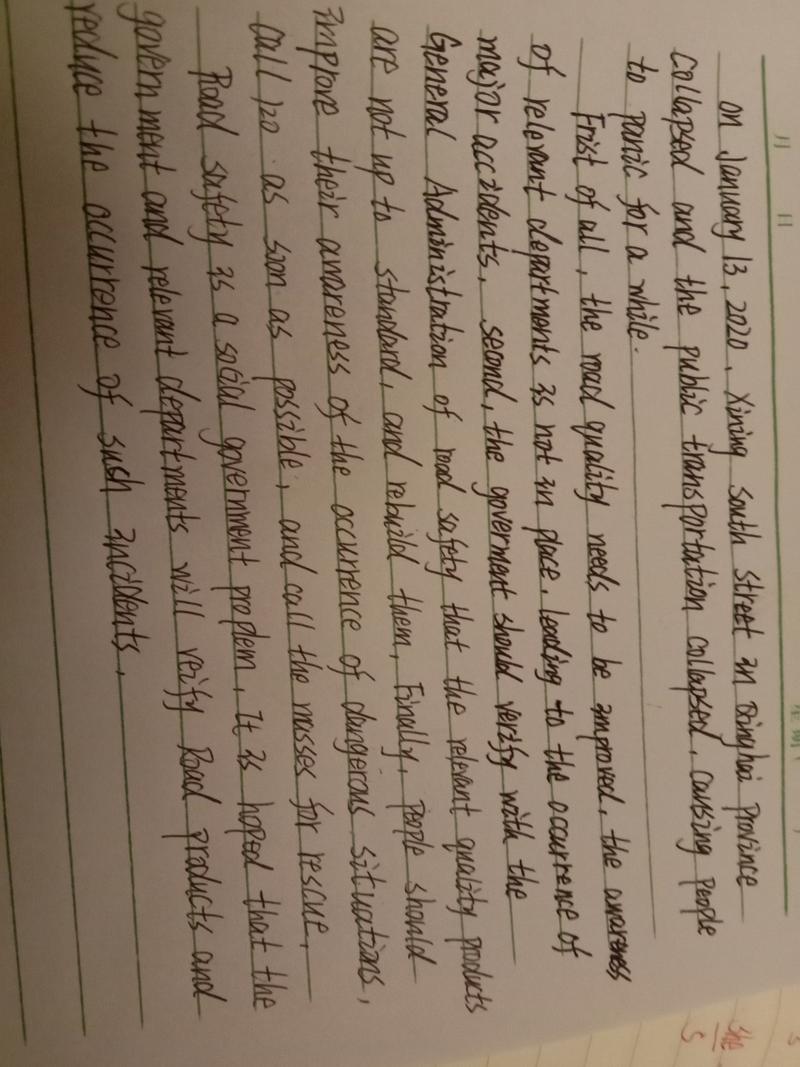 on January 13, 2020, Xining South street in Qinghai Province
collapsed and the public transportation collapsed, causing people
to panic for a while.
Frist of all, the road quality needs to be improved, the awareness
of relevant departments is not in place, leading to the occurrence of
major accidents, second, the goverment should verify with the
General Administration of road safety that the relevant quality products
are not up to standard, and rebuild them, Finally, people should
improve their awareness of the occurrence of dangerous situations,
call 120 as soon as possible, and call the masses for rescue,
Road safety is a social government proplem, It is hoped that the
government and relevant departments will verify Road products and
reduce the occurrence of sush incidents,
She
5